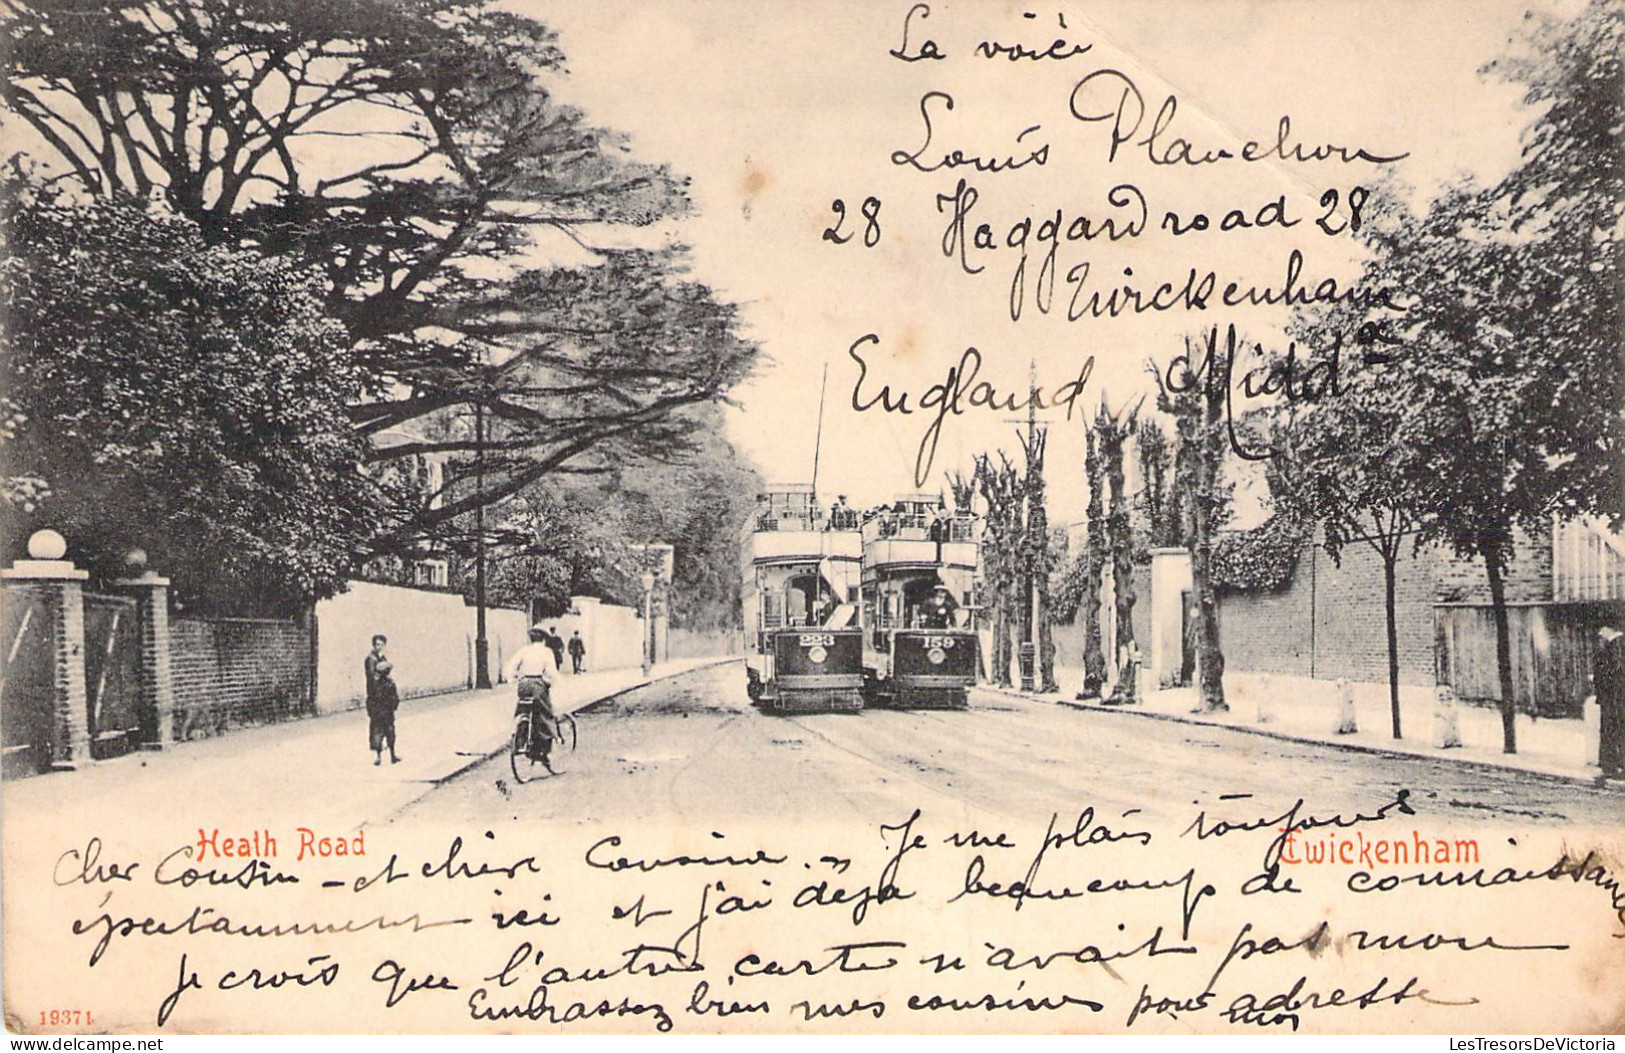 La voici
Louis Planchon
28 Haggard road 28
Twickenham
England Midd
223
159
Heath Road
Twickenham
Cher Cousin - et chère Cousine. - Je me plais toujours
épatamment ici et j'ai déja beaucoup de connaissances
Je crois que l'autre carte n'avait pas mon
adresse
Embrassez bien mes cousins pour moi
19371
delcampe.net
LesTresorsDeVictoria